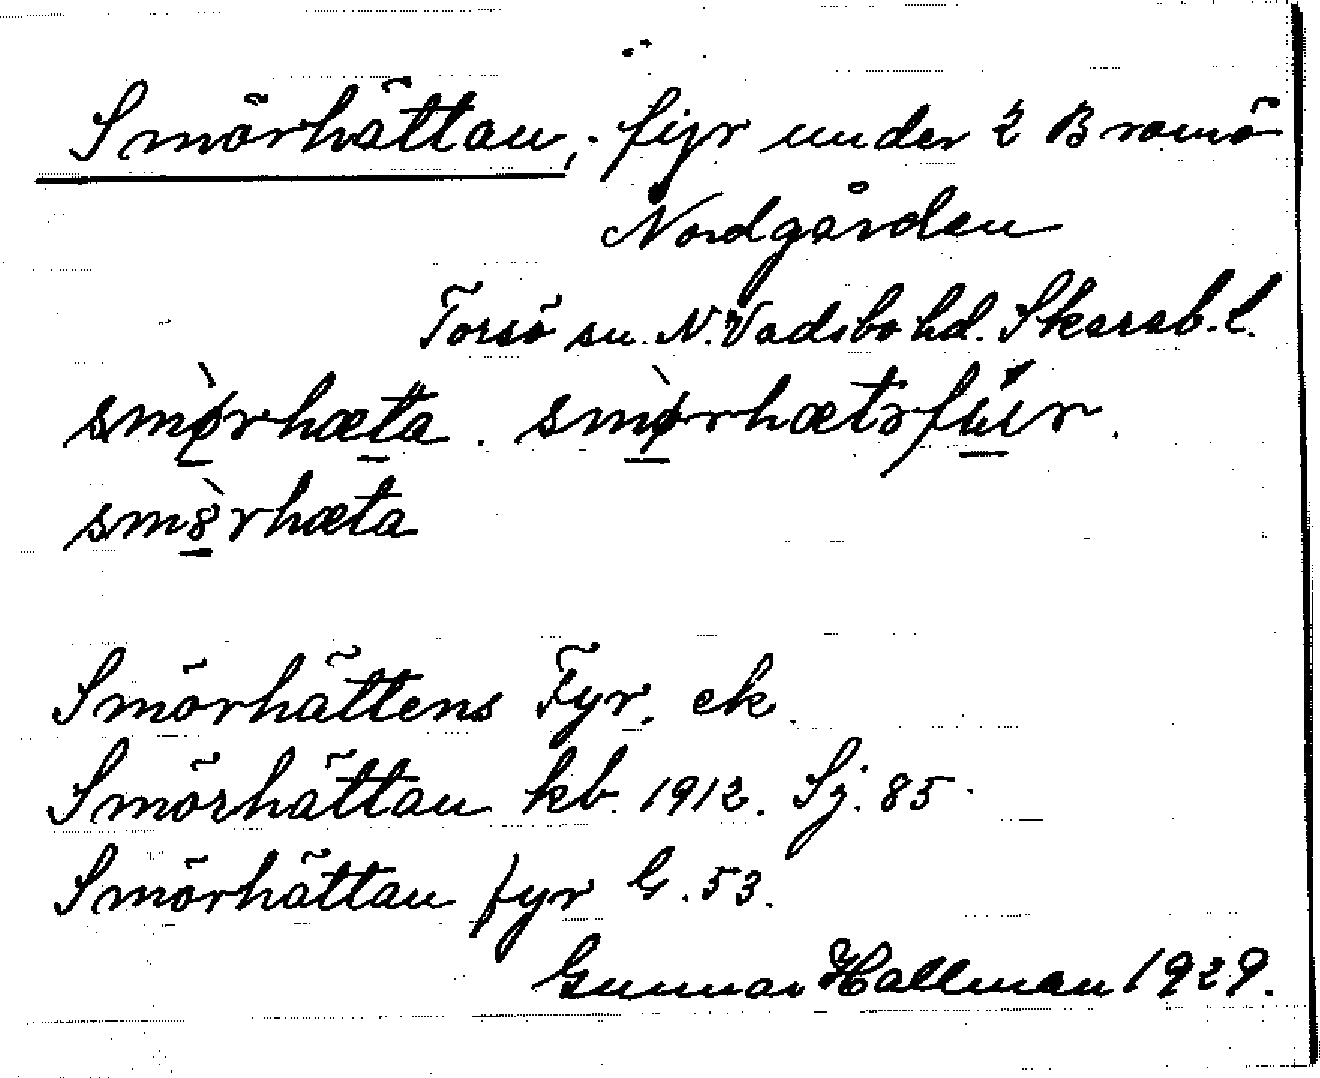 Smörhättan, fyr under 2 Bromö
Nordgården
Torsö sn. N. Vadsbo hd. Skarab. l.
smø̀rhæta. smø̀rhætsfür.
sm8̀rhæta
Smörhättens Fyr, ek.
Smörhättan kb. 1912. Sj. 85.
Smörhättan fyr G. 53.
Gunnar Hallman 1929.